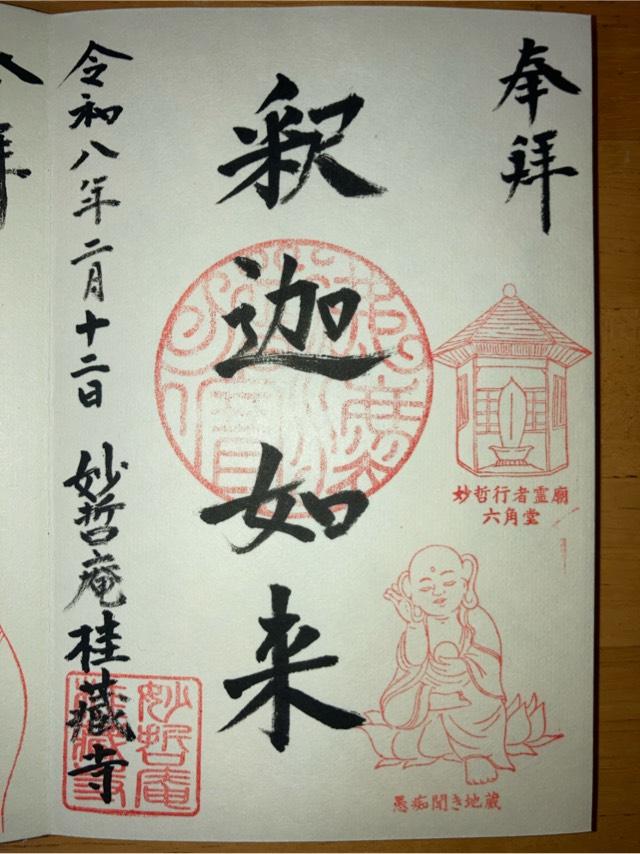 奉拝
妙哲行者霊廟
六角堂
愚痴聞き地蔵
釈迦如来
令和八年二月十二日 妙哲庵桂蔵寺
妙哲庵
桂蔵寺